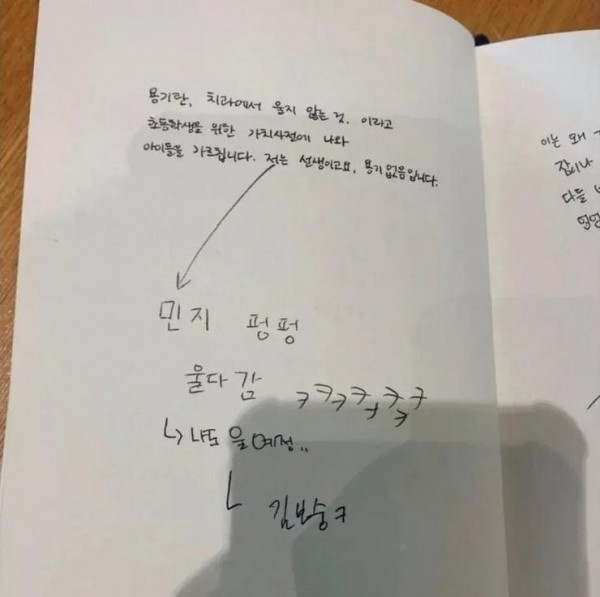 용기란, 치과에서 울지 않는 것, 이라고
초등학생을 위한 가치사전에 나와
아이들을 가르칩니다. 저는 선생이고요, 용기없음입니다.
민지 펑펑
울다감 ㅋㅋㅋㅋㅋㅋㅋ
↳ 나도 울 예정..
ㄴ 김보숭ㅋ
이는 왜
잠이나
다들
엉엉